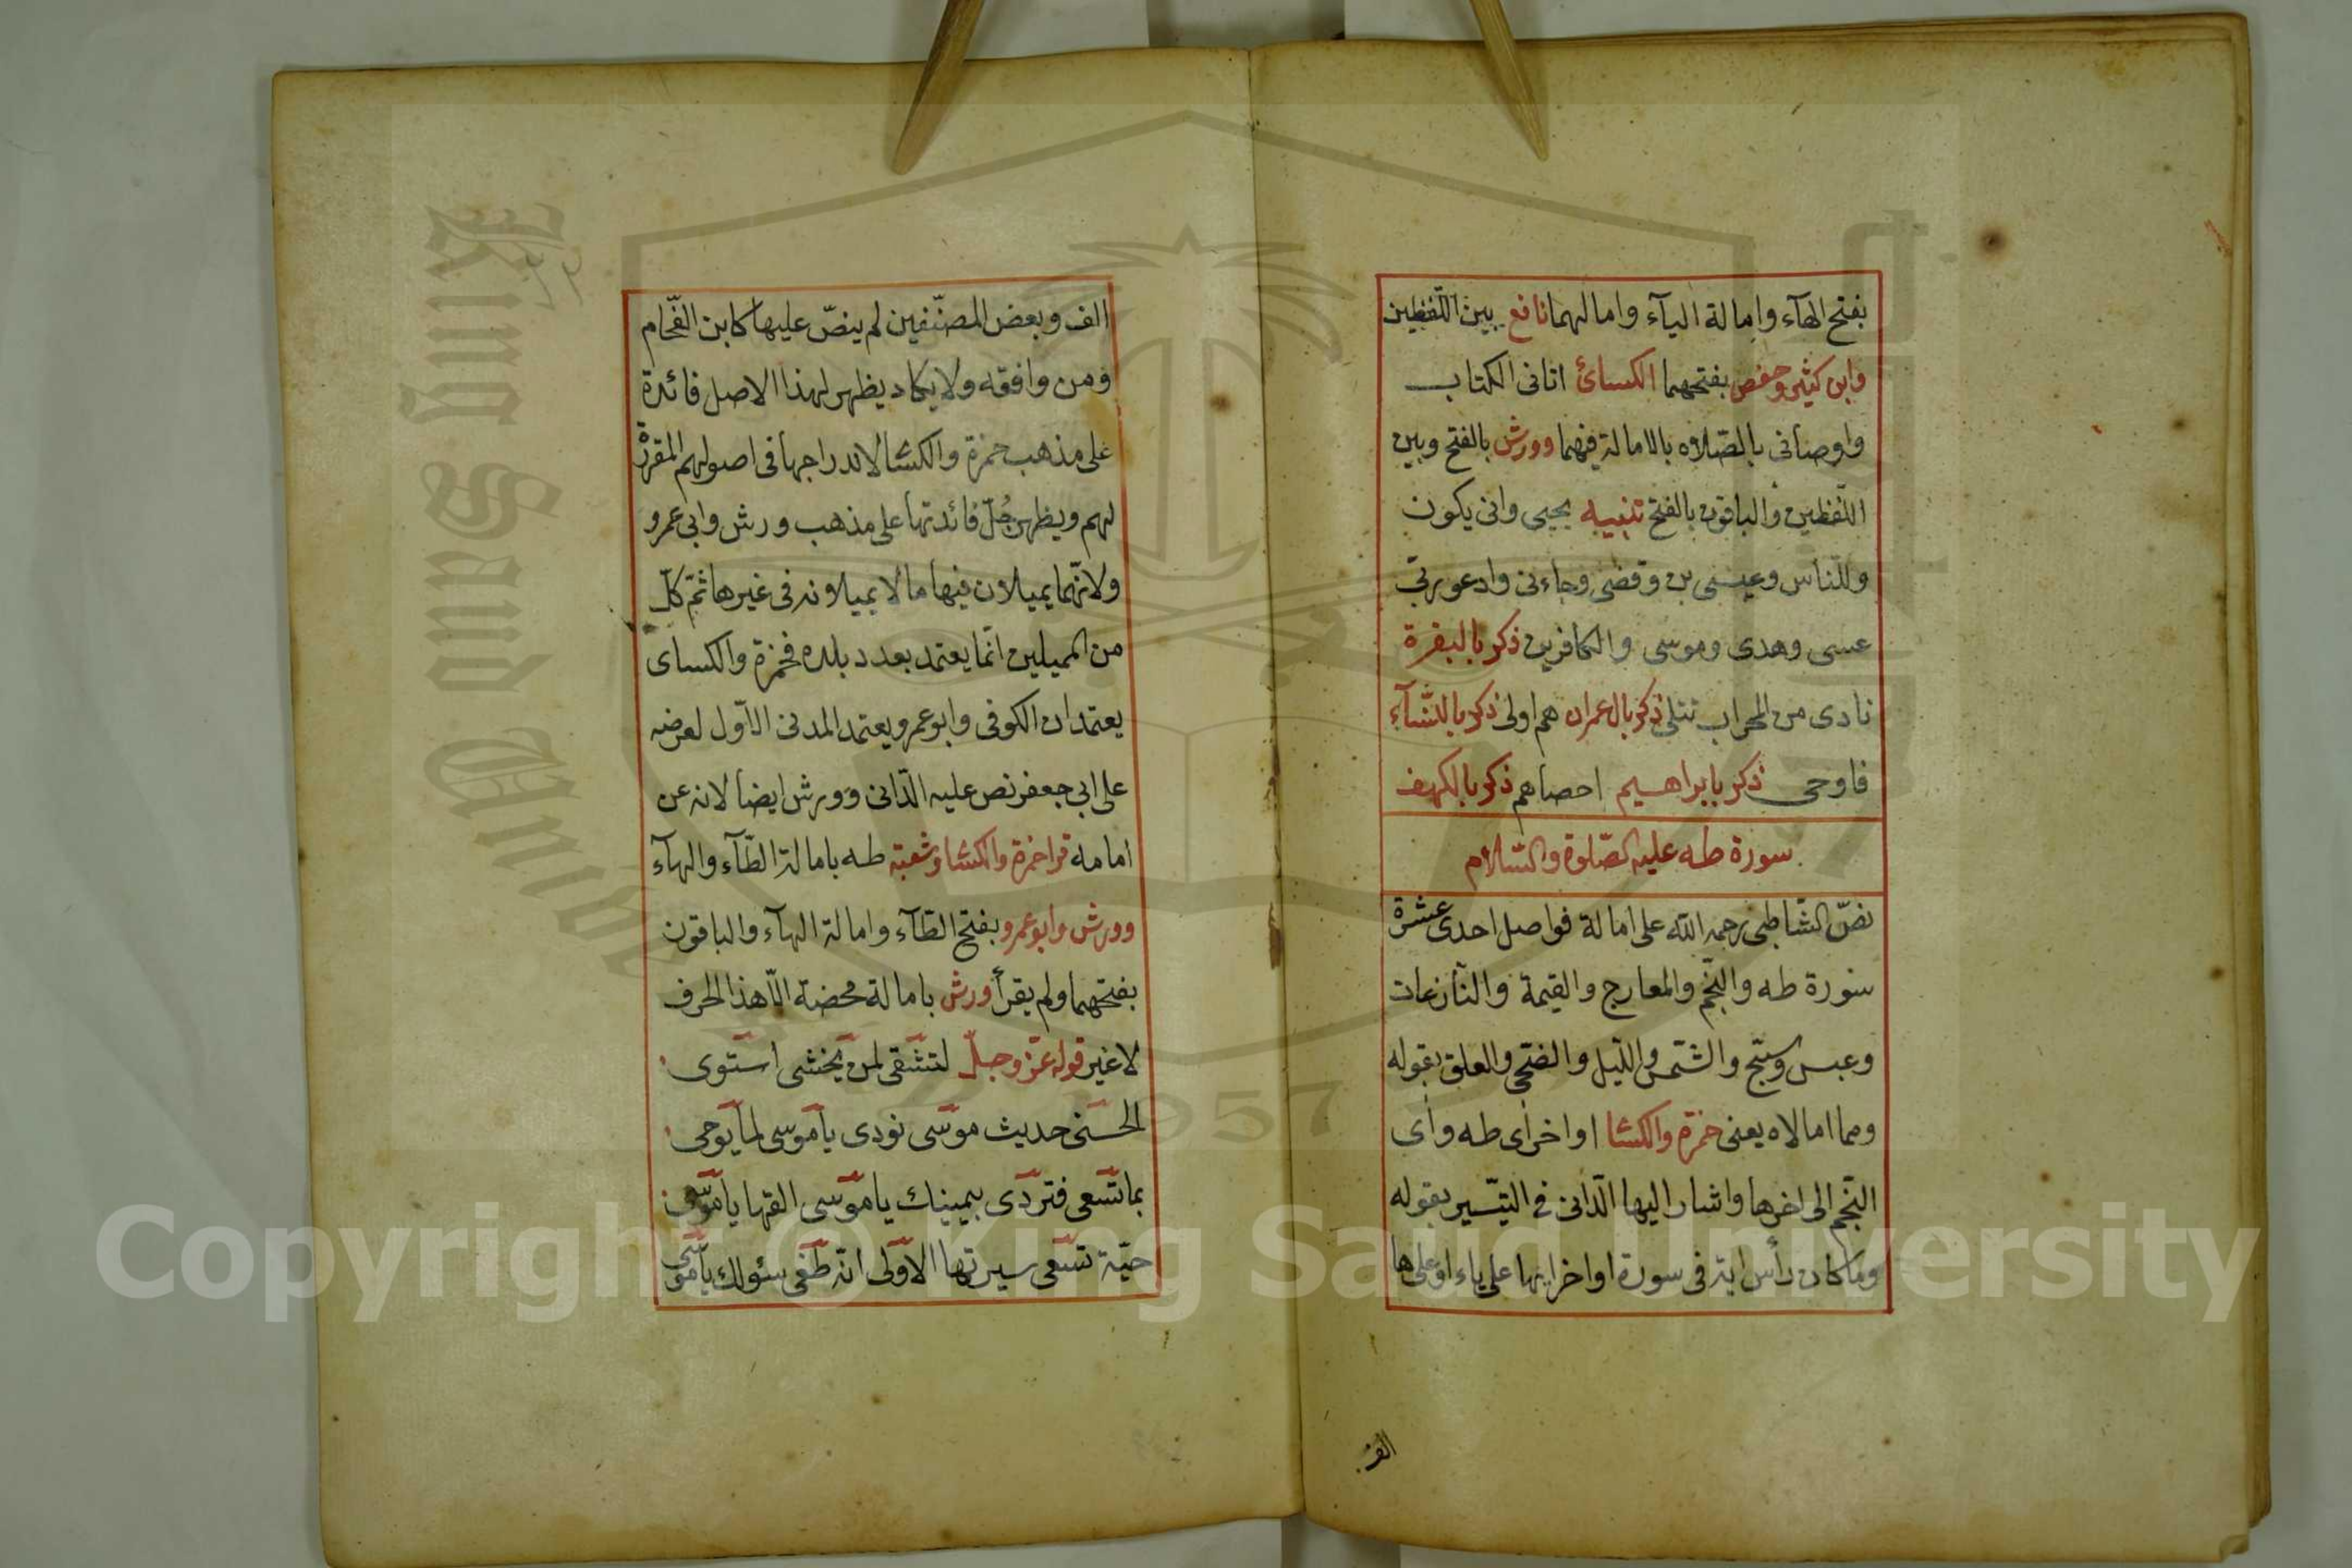 بفتح الهآء وامالة اليآء وامالهما نافع بين اللّفظين
وابن كثير وحفص بفتحهما الكسائ اتانى الكتاب
واوصانى بالصّلاه بالامالة فيهما وورش بالفتح وبين
اللّفظين والباقون بالفتح تنبيه يحيى وانى يكون
وللنّاس وعيسى بن وقضى وجاءنى وادعوربّى
عسى وهدى وموسى والكافرين ذكر بالبقرة
نادى من المحراب تتلى ذكر بال عمران هم اولى ذكر بالنّسآء
فاوحى ذكر بابراهيم احصاهم ذكر بالكهف
سورة طه عليه الصّلوة والسّلام
نصّ الشّاطبى رحمه اللّه على امالة فواصل احدى عشرة
سورة طه والنّجم والمعارج والقيمة والنّازعات
وعبس وسبّح والشّمس واللّيل والضّحى والعلق بقوله
ومما امالاه يعنى حمزة والكسّا اواخر اى طه واى
النّجم الى اخرها واشار اليها الدّانى فى التيّسير بقوله
وما كان رأس اية فى سورة اواخر ايها على ياء او على ها
الف
الف وبعض المصنّفين لم ينصّ عليها كابن الفحّام
ومن وافقه ولا يكاد يظهر لهذا الاصل فائدة
على مذهب حمزة والكسّا لاندراجها فى اصولهم المقررة
لهم ويظهر جُلّ فائدتها على مذهب ورش وابى عمرو
ولانّهما يميلان فيها ما لا يميلونه فى غيرها ثمّ كلّ
من المميلين انّما يعتمد بعدد بلده فحمزة والكساى
يعتمدان الكوفى وابو عمرو يعتمد المدنى الاوّل لعرضه
على ابى جعفر نص عليه الدّانى وورش ايضا لانه عن
امامه قرا حمزة والكسّا وشعبة طه بامالة الطّآء والهآء
وورش وابوعمرو بفتح الطّآء وامالة الهآء والباقون
بفتحهما ولم يقرأ ورش بامالة محضة الّا هذا الحرف
لا غير قوله عزّ وجلّ لتشقى لمن يخشى استوى
الحسنى حديث موسى نودى يا موسى لما يوحى
بما تسعى فتردى بيمينك يا موسى القها يا موسى
حيّة تسعى سيرتها الاولى انّه طغى سئولك يا موسى
Copyright © King Saud University
King Saud University
1957